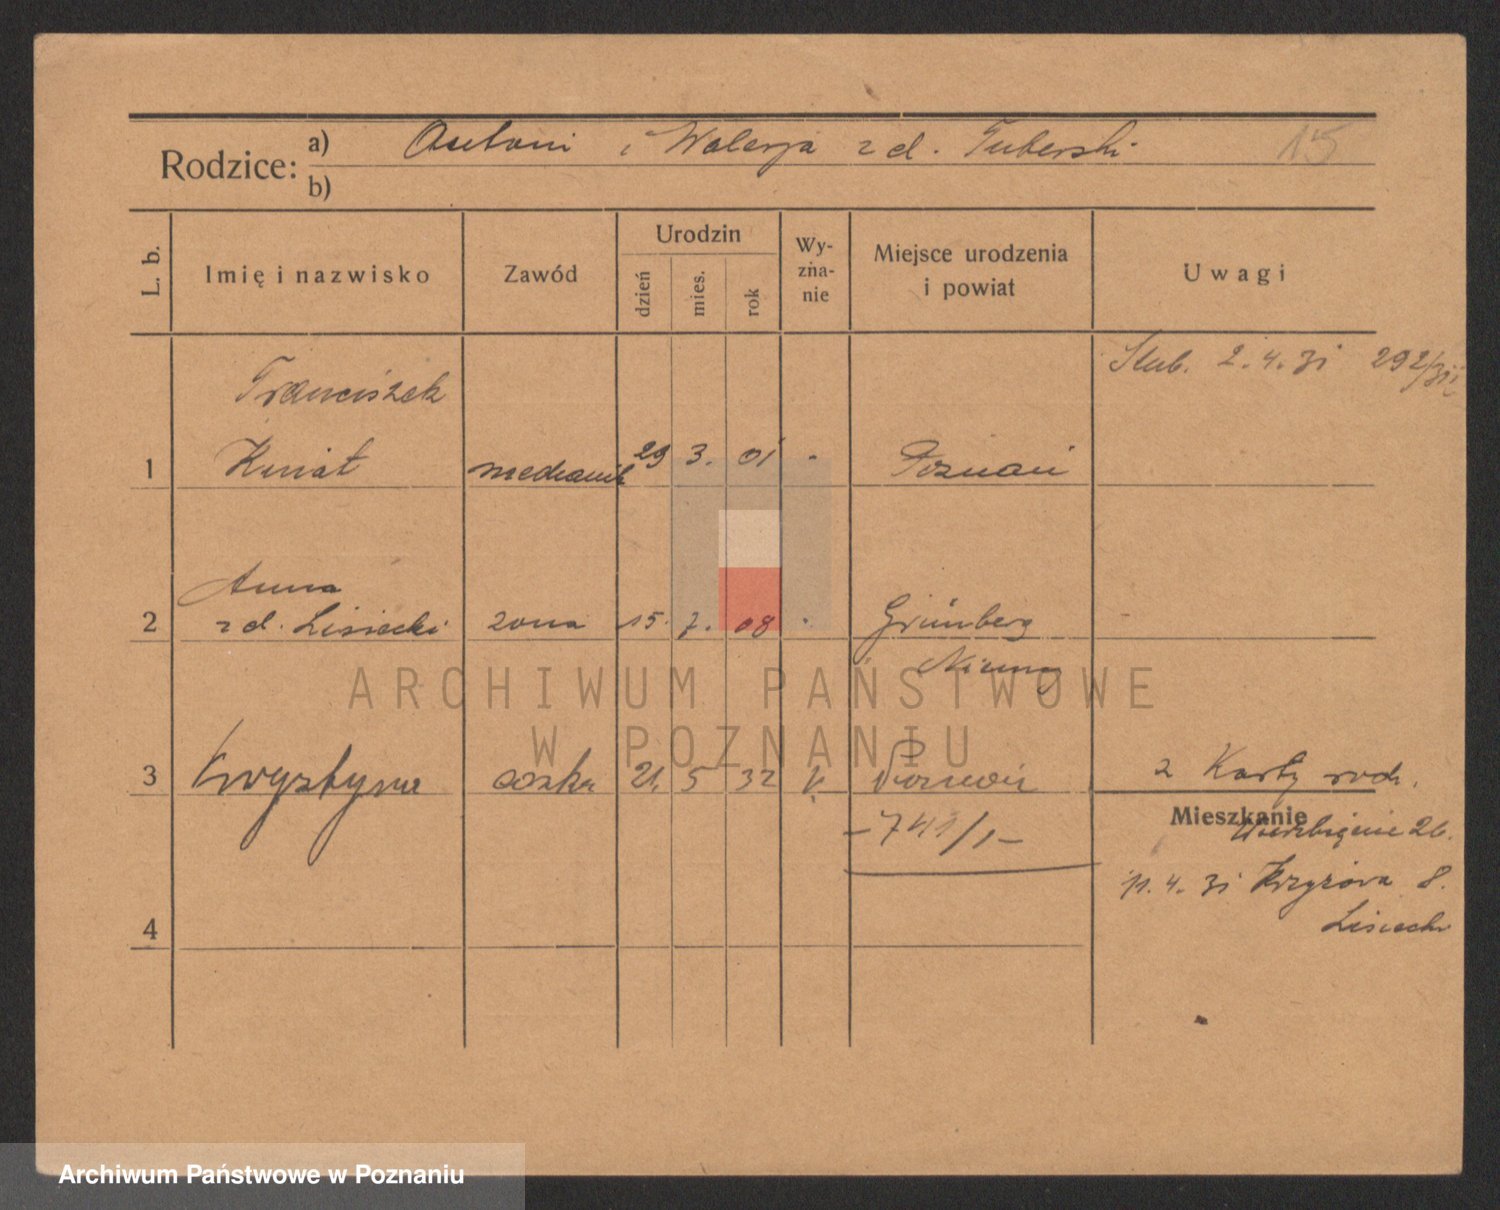 Rodzice: a) Antoni i Walerja z d. Tuberski 15
b)
L. b. Imię i nazwisko Zawód Urodzin dzień mies. rok Wyznanie Miejsce urodzenia i powiat Uwagi
Ślub. 2.4.31 292/31
Franciszek
1 Kwiat mechanik 29 3. 01 " Poznań
Anna
2 z d. Lisiecki żona 15. 7. 08 " Grünberg
Niemcy
3 Krystyna córka 21. 5 32 k Poznań 2 Karty rodz.
Mieszkanie
-741/1- Wierzbięcice 26.
11.4.31 Krzyżowa 8.
Lisiecki
4
ARCHIWUM PAŃSTWOWE
W POZNANIU
Archiwum Państwowe w Poznaniu